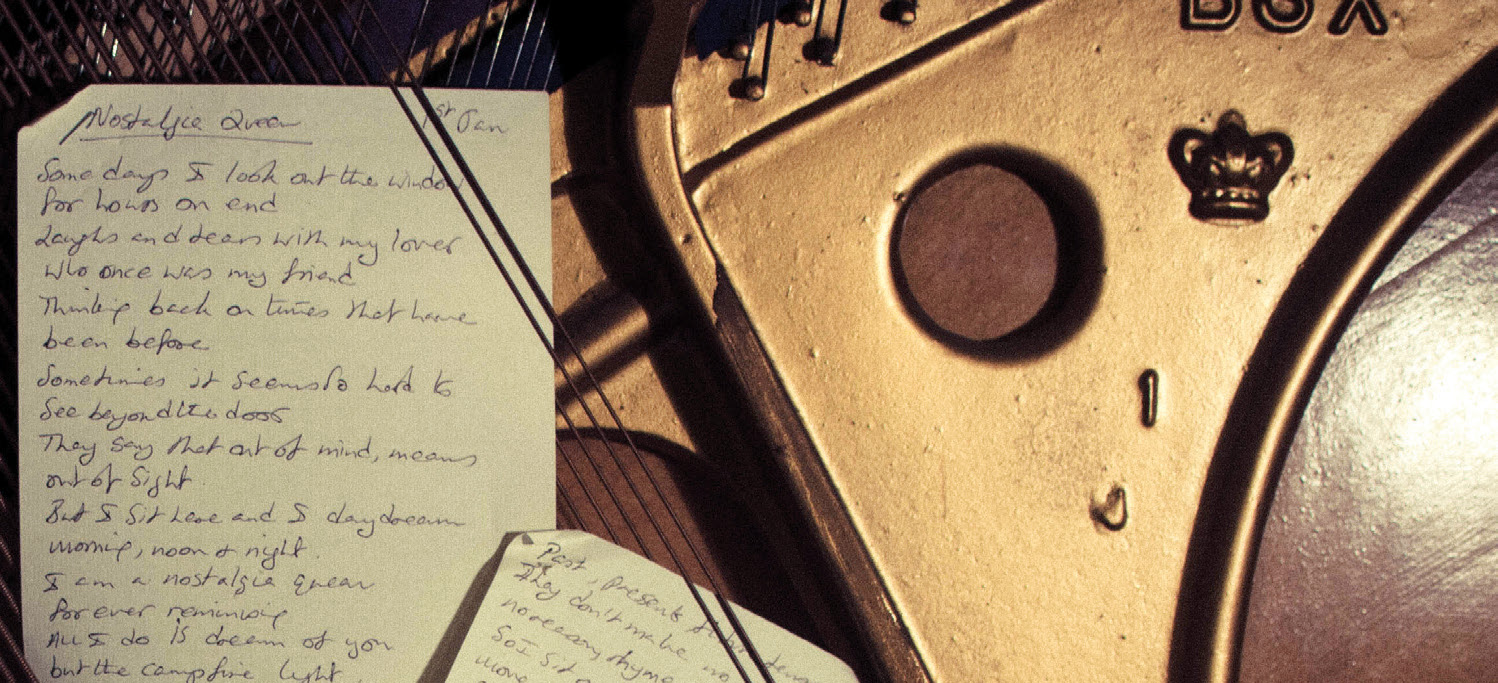 Nostalgia Queen
1st Jan
Some days I look out the window
for hours on end
Laughs and tears with my lover
who once was my friend
Thinking back on times that have
been before
Sometimes it seems so hard to
see beyond the door
They say that out of mind, means
out of sight
But I sit here and I daydream
morning, noon & night.
I am a nostalgia queen
forever reminising
All I do is dream of you
but the campfire light.
Past, present
They don't make no
no reason, rhyme
So I sit
more
BOX
1